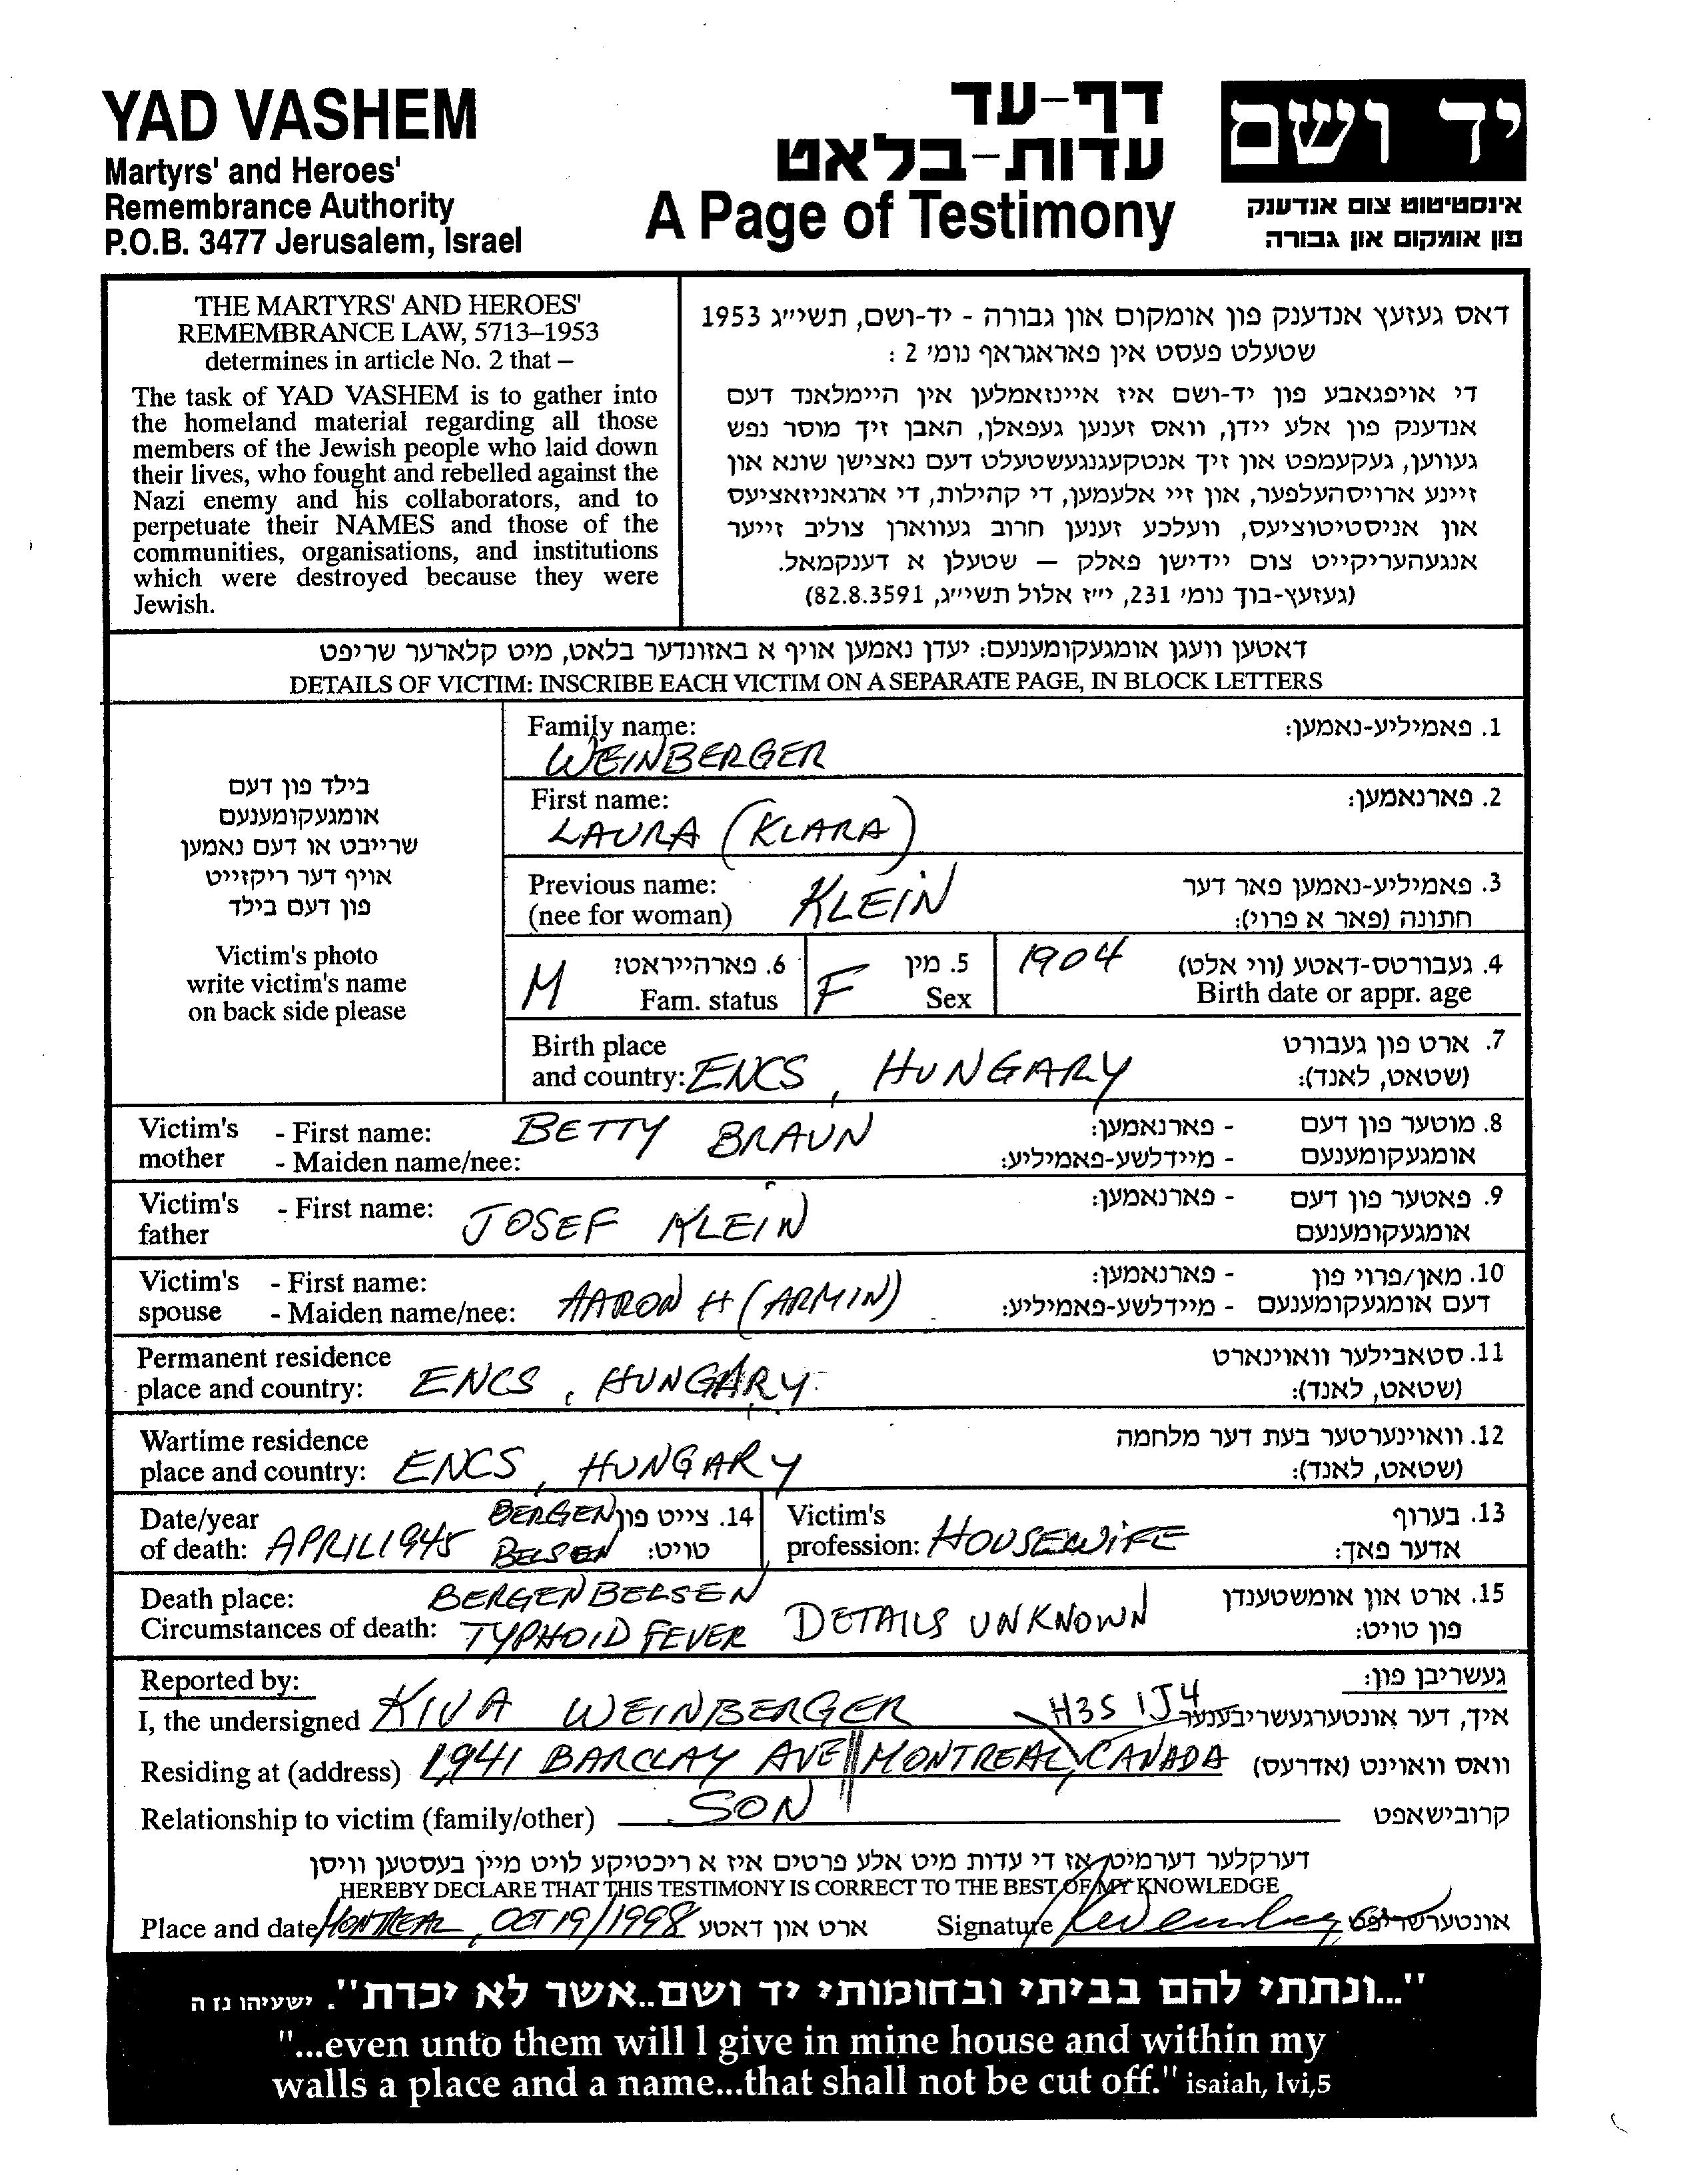 YAD VASHEM
Martyrs' and Heroes'
Remembrance Authority
P.O.B. 3477 Jerusalem, Israel
דף-עד
עדות-בלאט
A Page of Testimony
יד ושם
אינסטיטוט צום אנדענק
פון אומקום און גבורה
THE MARTYRS' AND HEROES'
REMEMBRANCE LAW, 5713–1953
determines in article No. 2 that –
The task of YAD VASHEM is to gather into
the homeland material regarding all those
members of the Jewish people who laid down
their lives, who fought and rebelled against the
Nazi enemy and his collaborators, and to
perpetuate their NAMES and those of the
communities, organisations, and institutions
which were destroyed because they were
Jewish.
דאס געזעץ אנדענק פון אומקום און גבורה - יד-ושם, תשי״ג 1953
שטעלט פעסט אין פאראגראף נומ׳ 2 :
די אויפגאבע פון יד-ושם איז איינזאמלען אין היימלאנד דעם
אנדענק פון אלע יידן, וואס זענען געפאלן, האבן זיך מוסר נפש
געווען, געקעמפט און זיך אנטקעגנגעשטעלט דעם נאצישן שונא און
זיינע ארויסהעלפער, און זיי אלעמען, די קהילות, די ארגאניזאציעס
און אניסטיטוציעס, וועלכע זענען חרוב געווארן צוליב זייער
אנגעהעריקייט צום יידישן פאלק – שטעלן א דענקמאל.
(געזעץ-בוך נומ׳ 231, י״ז אלול תשי״ג, 82.8.3591)
דאטען וועגן אומגעקומענעם: יעדן נאמען אויף א באזונדער בלאט, מיט קלארער שריפט
DETAILS OF VICTIM: INSCRIBE EACH VICTIM ON A SEPARATE PAGE, IN BLOCK LETTERS
בילד פון דעם
אומגעקומענעם
שרייבט או דעם נאמען
אויף דער ריקזייט
פון דעם בילד
Victim's photo
write victim's name
on back side please
Family name: 1. פאמיליע-נאמען:
WEINBERGER
First name: 2. פארנאמען:
LAURA (KLARA)
Previous name: KLEIN 3. פאמיליע-נאמען פאר דער
(nee for woman) חתונה (פאר א פרוי):
M 6. פארהייראט? F 5. מין 1904 4. געבורטס-דאטע (ווי אלט)
Fam. status Sex Birth date or appr. age
Birth place 7. ארט פון געבורט
and country: ENCS, HUNGARY (שטאט, לאנד):
Victim's - First name: BETTY BRAUN - פארנאמען: 8. מוטער פון דעם
mother - Maiden name/nee: - מיידלשע-פאמיליע: אומגעקומענעם
Victim's - First name: JOSEF KLEIN - פארנאמען: 9. פאטער פון דעם
father אומגעקומענעם
Victim's - First name: - פארנאמען: 10. מאן/פרוי פון
spouse - Maiden name/nee: AARON H (ARMIN) - מיידלשע-פאמיליע: דעם אומגעקומענעם
Permanent residence 11. סטאבילער וואוינארט
place and country: ENCS, HUNGARY (שטאט, לאנד):
Wartime residence 12. וואוינערטער בעת דער מלחמה
place and country: ENCS, HUNGARY (שטאט, לאנד):
Date/year BERGEN 14. צייט פון Victim's 13. בערוף
of death: APRIL 1945 BELSEN טויט: profession: HOUSEWIFE אדער פאך:
Death place: BERGEN BELSEN 15. ארט און אומשטענדן
Circumstances of death: TYPHOID FEVER DETAILS UNKNOWN פון טויט:
Reported by: געשריבן פון:
I, the undersigned KIVA WEINBERGER H3S 1J4 איך, דער אונטערגעשריבענער
Residing at (address) 1941 BARCLAY AVE MONTREAL, CANADA וואס וואוינט (אדרעס)
Relationship to victim (family/other) SON קרובישאפט
דערקלער דערמיט אז די עדות מיט אלע פרטים איז א ריכטיקע לויט מיין בעסטען וויסן
HEREBY DECLARE THAT THIS TESTIMONY IS CORRECT TO THE BEST OF MY KNOWLEDGE
Place and date MONTREAL, OCT 19/1998 ארט און דאטע Signature אונטערשריפט
"...ונתתי להם בביתי ובחומותי יד ושם..אשר לא יכרת". ישעיהו נז ה
"...even unto them will I give in mine house and within my
walls a place and a name...that shall not be cut off." isaiah, lvi,5